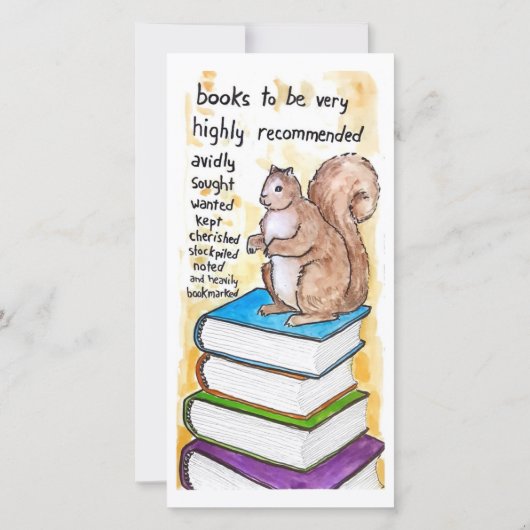 books to be very
highly recommended
avidly
sought
wanted
kept
cherished
stockpiled
noted
and heavily
bookmarked